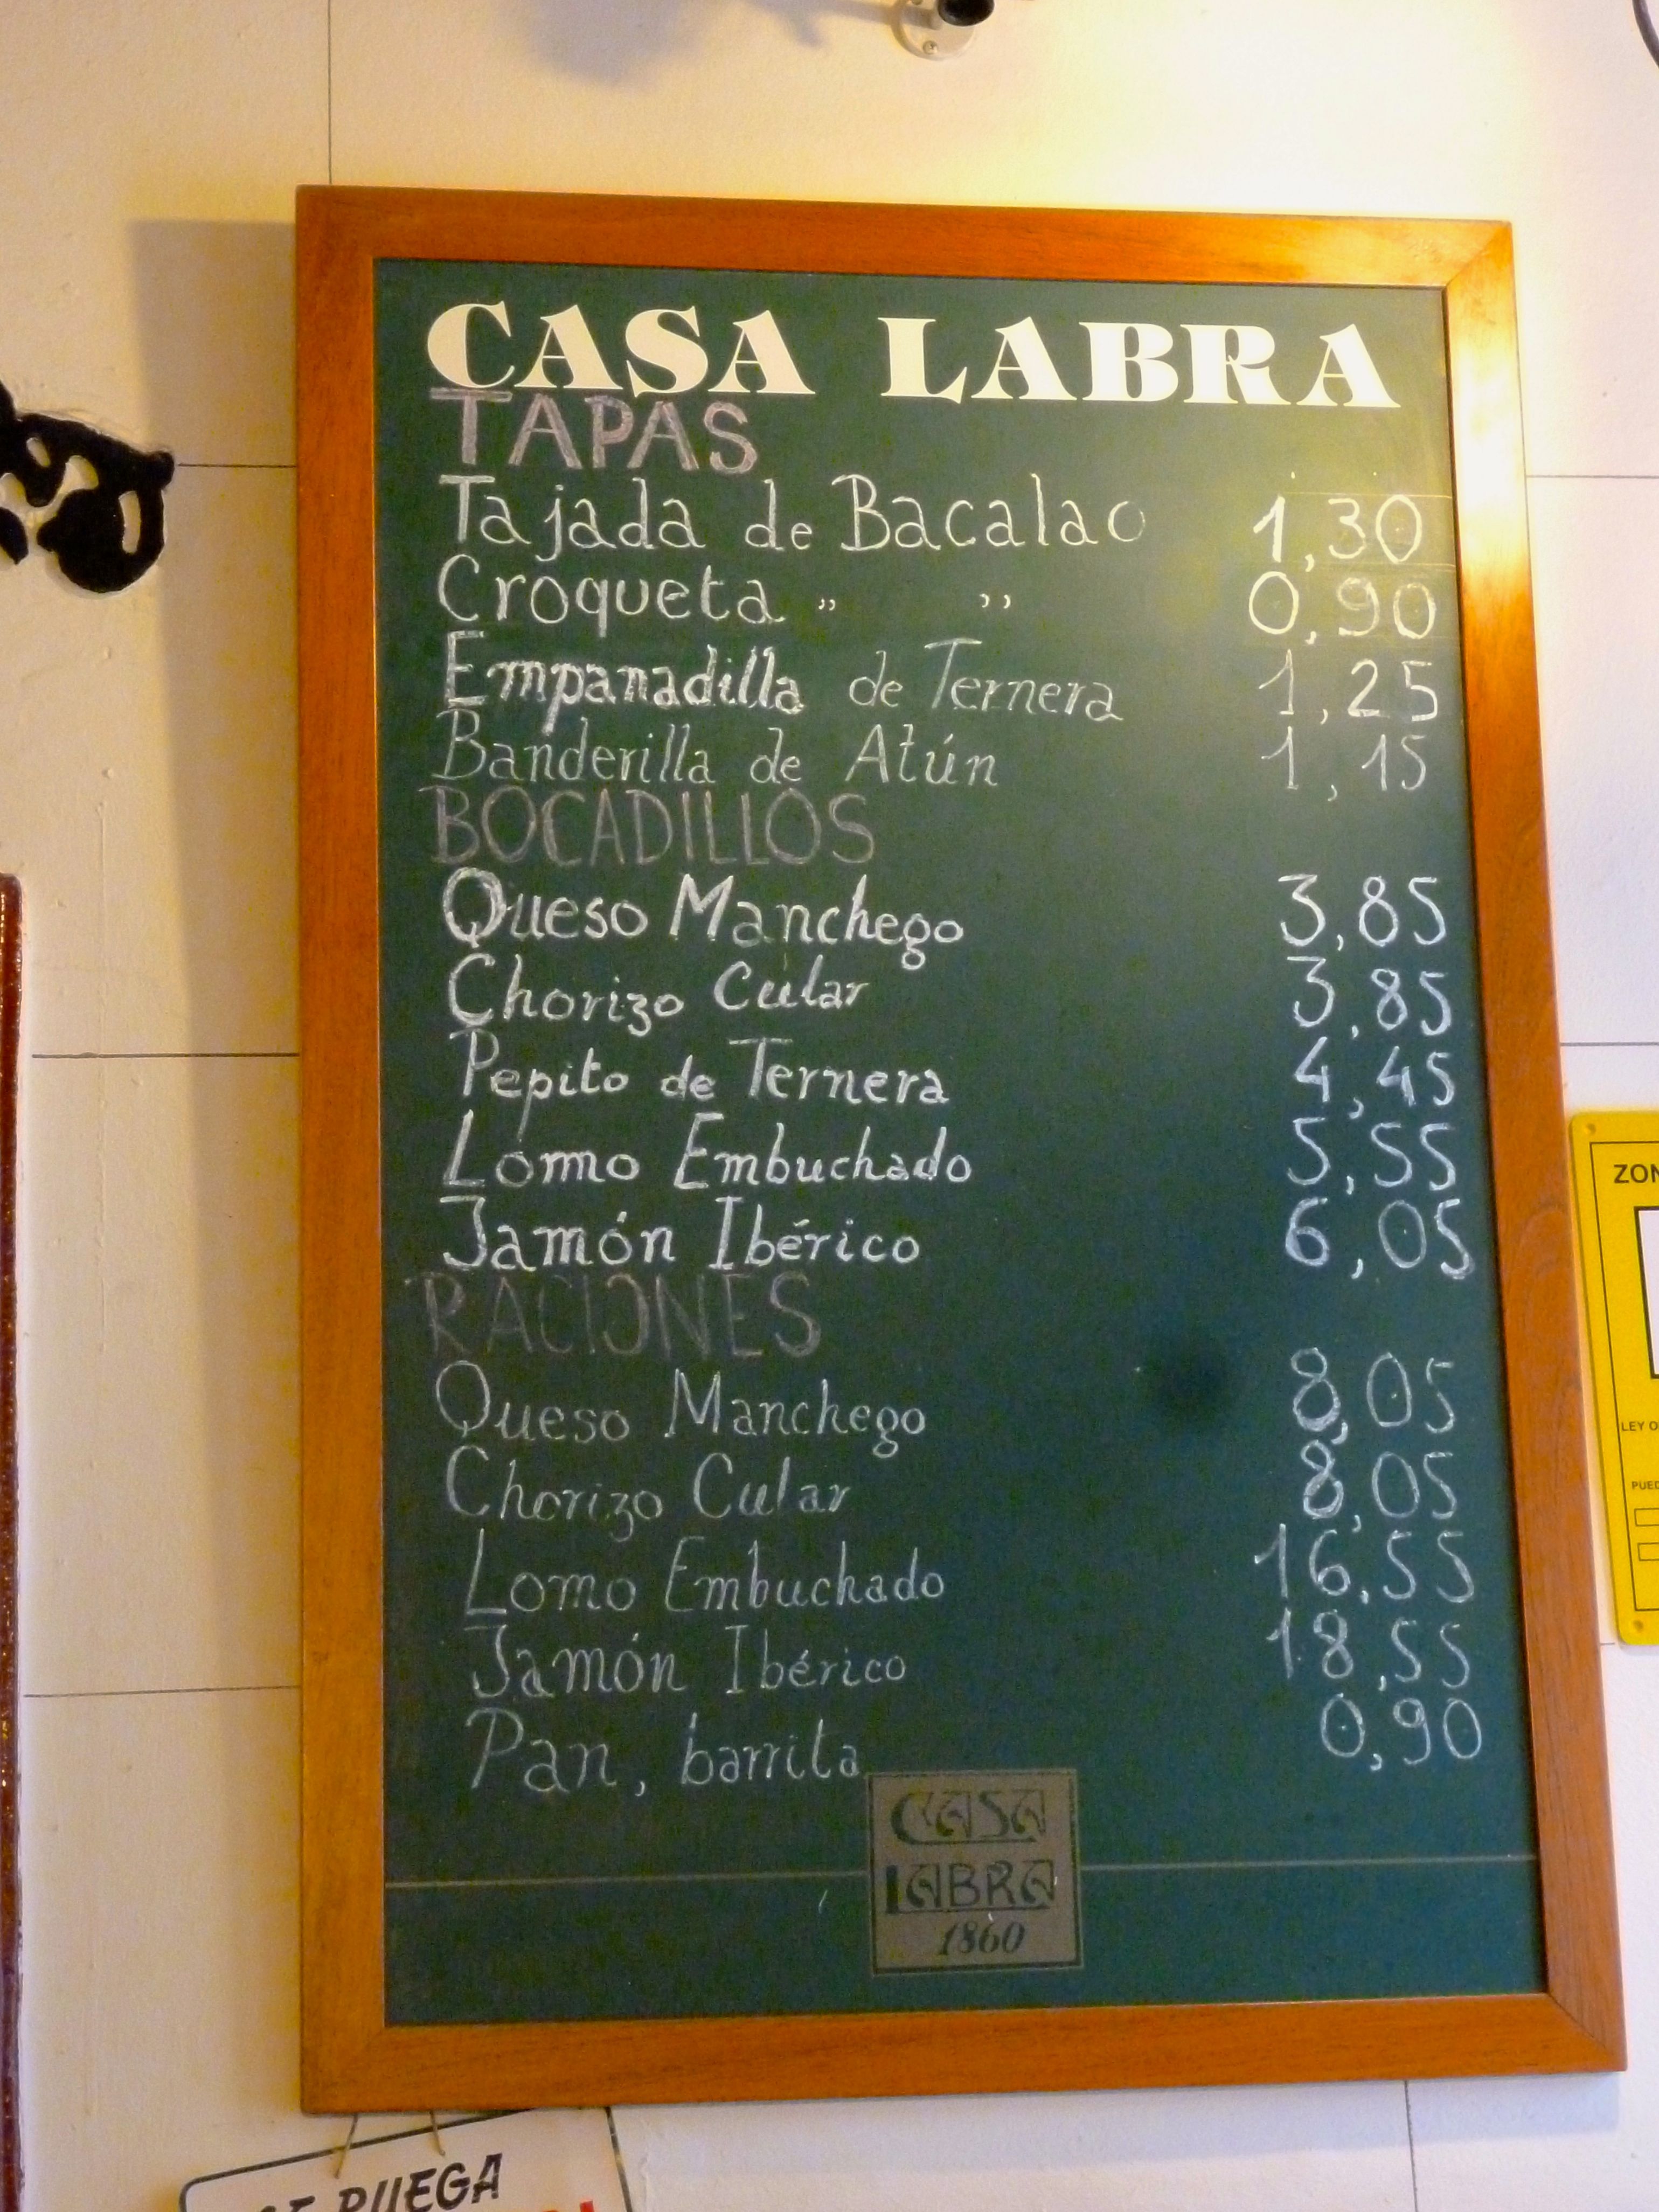 CASA LABRA
TAPAS
Tajada de Bacalao 1,30
Croqueta " " 0,90
Empanadilla de Ternera 1,25
Banderilla de Atún 1,15
BOCADILLOS
Queso Manchego 3,85
Chorizo Cular 3,85
Pepito de Ternera 4,45
Lomo Embuchado 5,55
Jamón Ibérico 6,05
RACIONES
Queso Manchego 8,05
Chorizo Cular 8,05
Lomo Embuchado 16,55
Jamón Ibérico 18,55
Pan, barrita 0,90
CASA
LABRA
1860
ZON
LEY O
PUED
SE RUEGA